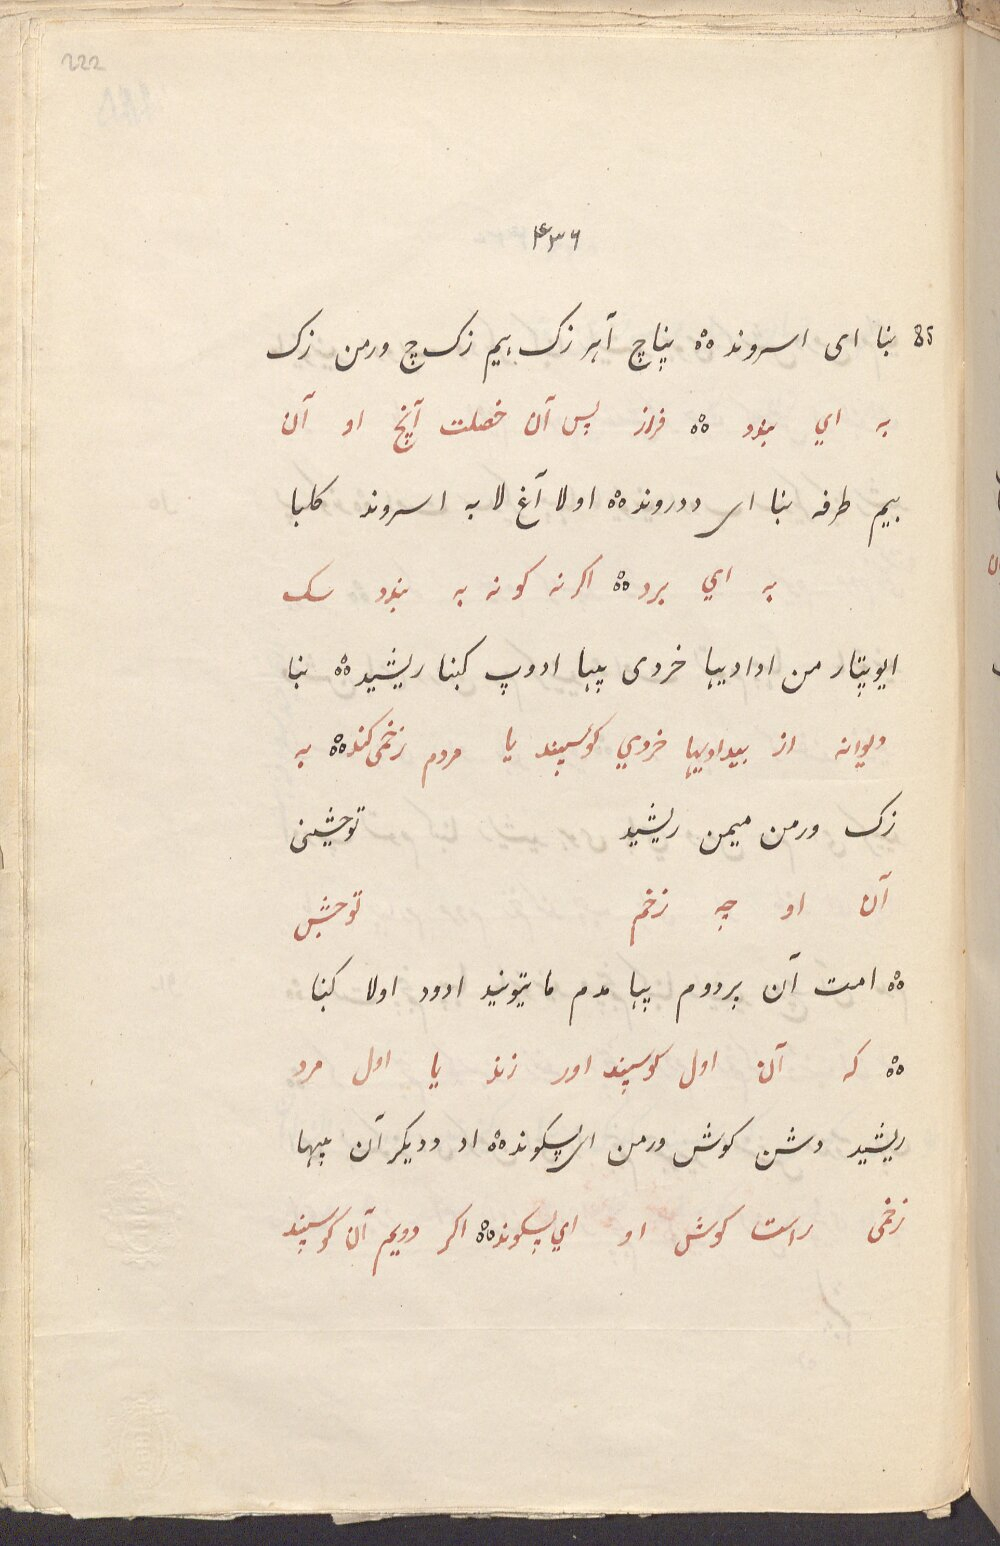 222
۴۳۶
85 بنا ای اسروند ٥٥ پناچ آہر زک بیم زک چ ورمن زک
به اي بندد ٥٥ فراز پس آن خصلت آنچ او آن
بیم طرفه بنا ای ددروند ٥٥ اولا آغ لا به اسروند کلبا
به اي برد ٥٥ اکر نه کو نه به بندد سک
ایوپتار من ادادیہا خردی پیہا ادوپ کبنا ریشید ٥٥ بنا
دیوانه از بیدادیہا خردي کوسپند یا مردم زخمی کند ٥٥ به
زک ورمن میمن ریشید توخشینی
آن او چه زخم توخشش
٥٥ امت آن بردوم پیہا مدم ماتیونید ادود اولا کبنا
٥٥ که آن اول کوسپند اور زند یا اول مرد
ریشید دشن کوش ورمن ای پسکوند ٥٥ اد ددیکر آن پیہا
زخمی راست کوش او اي پسکوند ٥٥ اکر دویم آن کوسپند